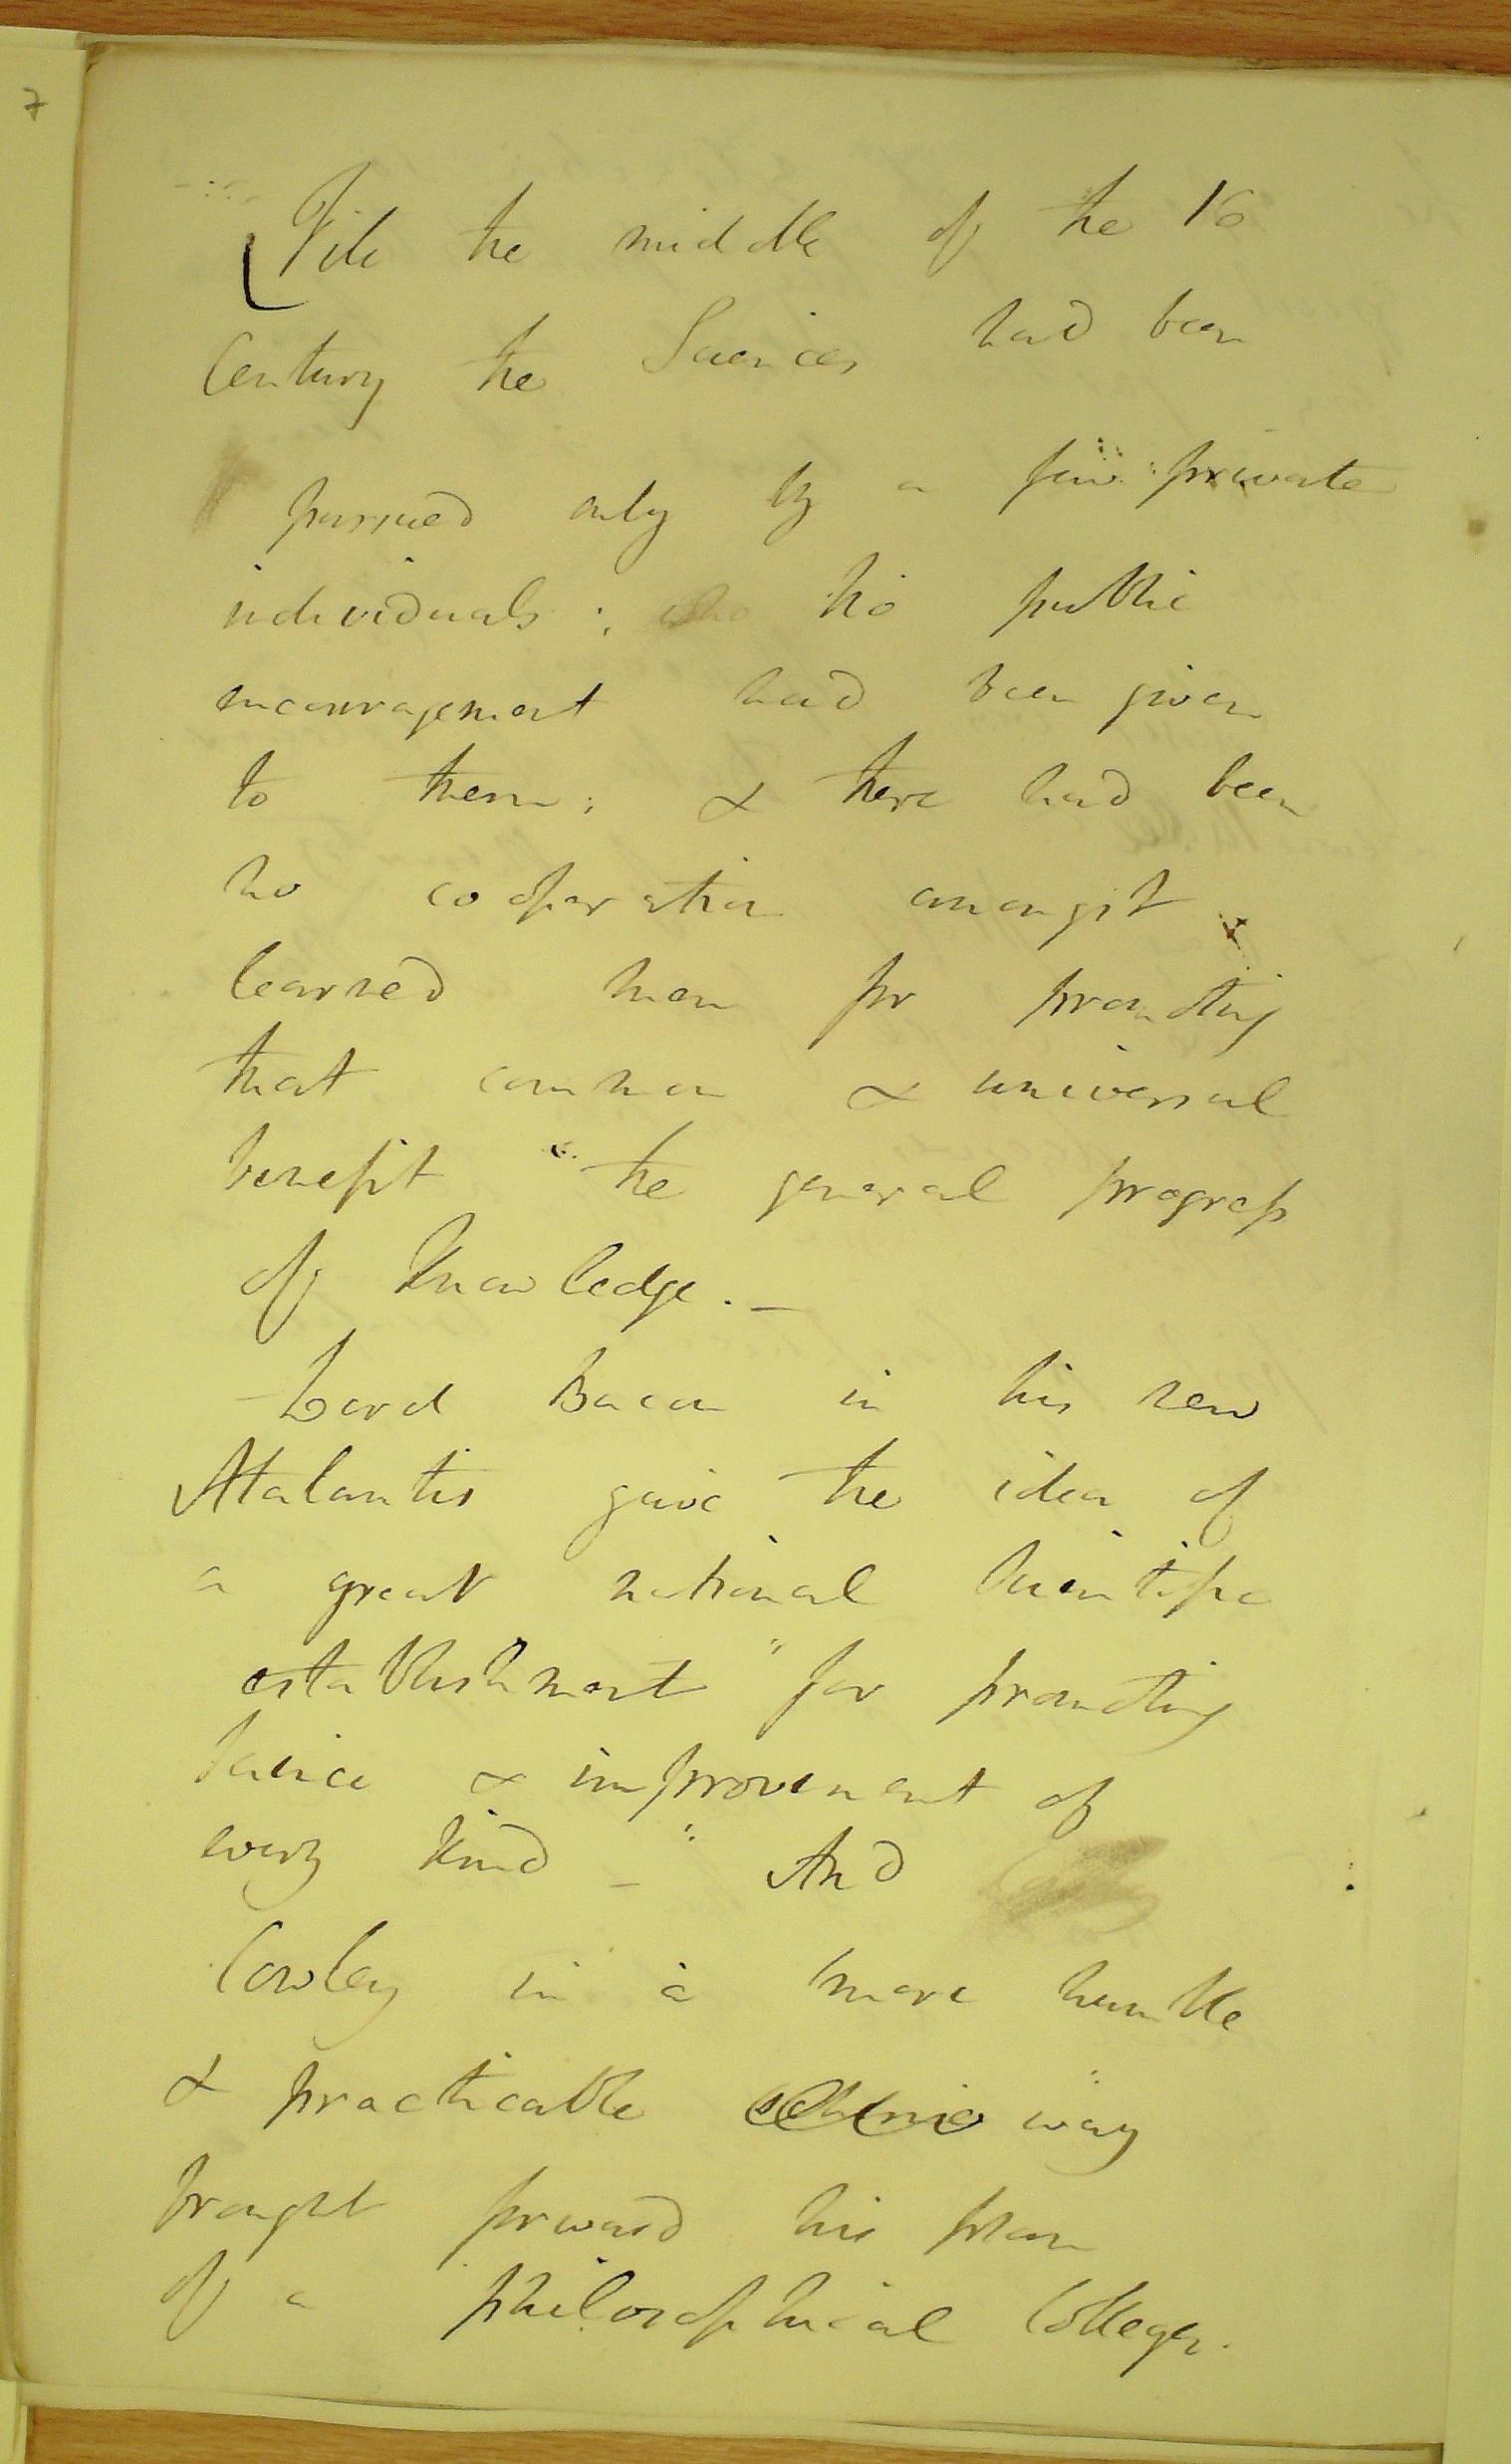 7
Till the middle of the 16
Century the Sciences had been
pursued only by a few private
individuals; who no public
encouragement had been given
to them; & there had been
no cooperation amongst
learned men for promoting
that common & universal
benefit "the general progress
of knowledge. –
– Lord Bacon in his new
Atalantis gave the idea of
a great national scientific
establishment "for promoting
science & improvement of
every kind – " And
Cowley in a more humble
& practicable way
brought forward his plan
of a philosophical College.